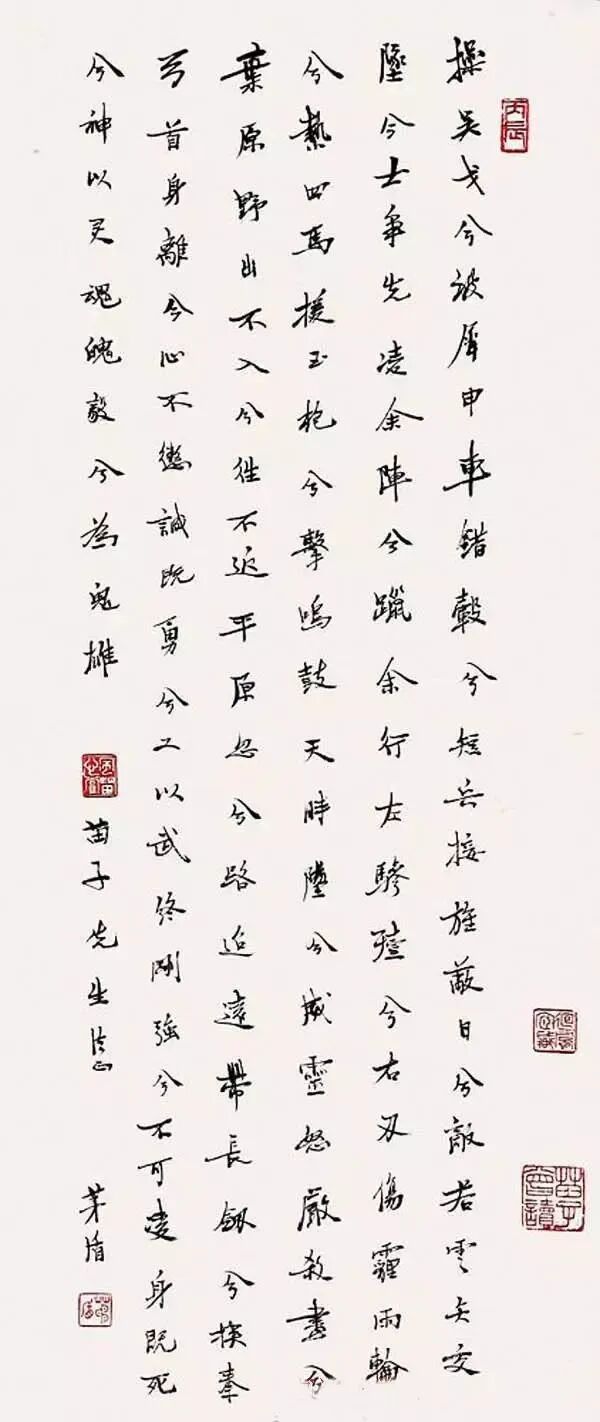 操吴戈兮被犀甲車錯轂兮短兵接旌蔽日兮敵若雲矢交
墜兮士爭先凌余陣兮躐余行左驂殪兮右刃傷霾兩輪
兮縶四馬援玉枹兮擊鳴鼓天時墜兮威靈怒嚴殺盡兮
棄原野出不入兮往不返平原忽兮路迢遠帶長劍兮挾秦
弓首身離兮心不懲誠既勇兮又以武終剛強兮不可凌身既死
兮神以灵魂魄毅兮為鬼雄
苗子先生法正
茅盾
丙辰
苗子曾讀